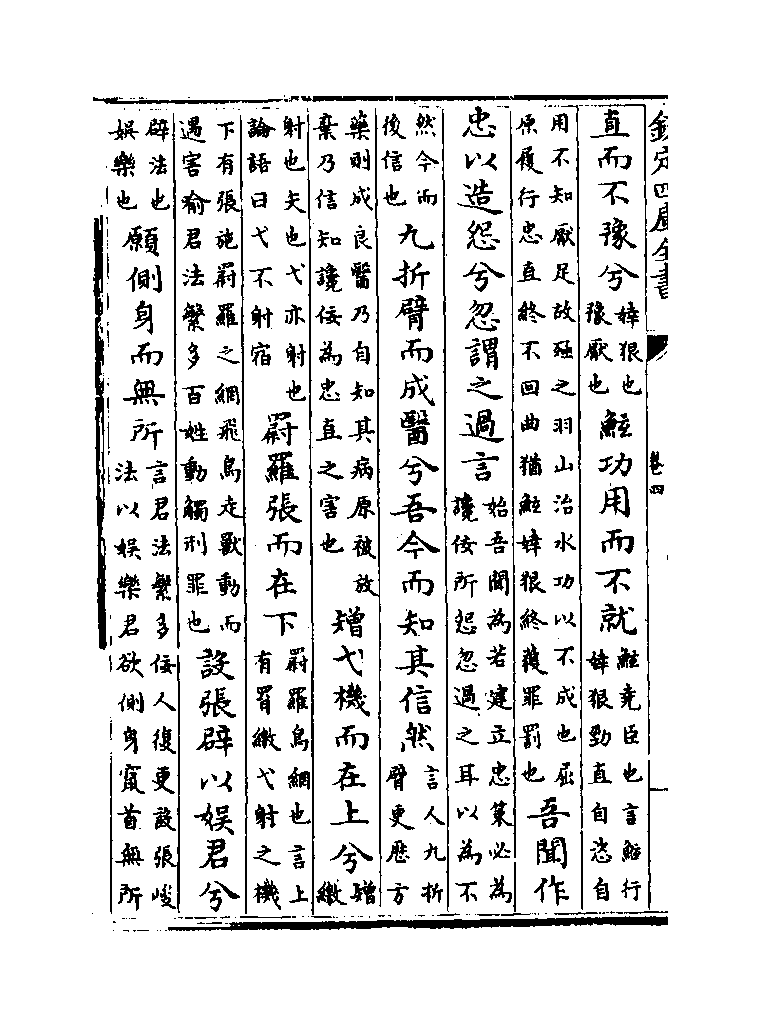 欽定四庫全書 卷四
直而不豫兮婞狠也豫厭也鮌功用而不就鮌堯臣也言鮌行婞狠勁直自恣自
用不知厭足故殛之羽山治水功以不成也屈原履行忠直終不回曲猶鮌婞狠終獲罪罰也吾聞作
忠以造怨兮忽謂之過言始吾聞為若建立忠策必為讒佞所怨忽過之耳以為不
然今而後信也九折臂而成醫兮吾今而知其信然言人九折臂更歴方
藥則成良醫乃自知其病原被放棄乃信知讒佞為忠直之害也矰弋機而在上兮矰繳
射也矢也弋亦射也論語曰弋不射宿罻羅張而在下罻羅鳥網也言上有罥繳弋射之機
下有張施罻羅之網飛鳥走獸動而遇害喻君法繁多百姓動觸刑罪也設張辟以娱君兮
辟法也娱樂也願側身而無所言君法繁多佞人復更設張峻法以娱樂君欲側身竄首無所